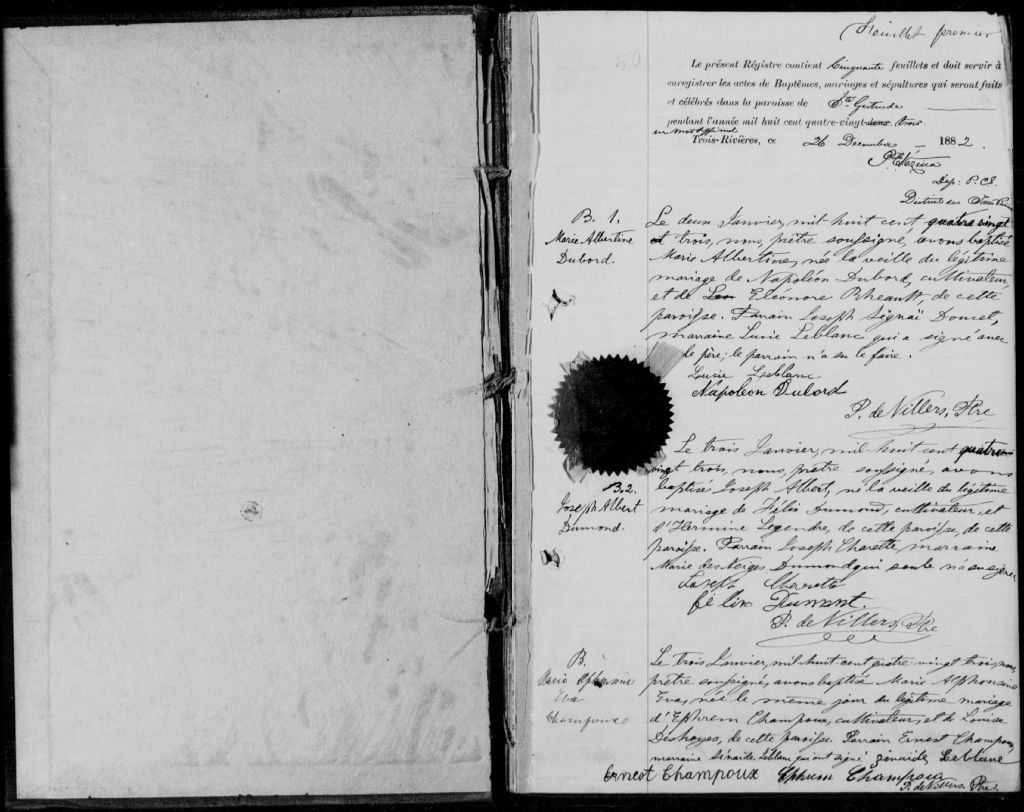 Feuillet premier
50
Le présent Régistre contient Cinquante feuillets et doit servir à
enregistrer les actes de Baptêmes, mariages et sépultures qui seront faits
et célébrés dans la paroisse de Ste Gertrude
pendant l'année mil huit cent quatre-vingt-deux trois
Trois-Rivières, ce 26 Decembre 1882.
Dep: P. C. S.
District des Trois Rivières
B. 1.
Marie Albertine
Dubord.
Le deux Janvier, mil huit cent, quatre vingt
et trois, nous, prêtre soussigné, avons baptisé
Marie Albertine, née la veille du légitime
mariage de Napoléon Dubord, cultivateur,
et de Leo Eléonore Rheault, de cette
paroisse. Parrain Joseph Signaï Doucet,
marraine Lucie Leblanc qui a signé avec
le père; le parrain n'a su le faire.
Lucie Leblanc
Napoleon Dubord
P. de Villers, Ptre
B. 2.
Joseph Albert
Dumond.
Le trois Janvier, mil huit cent quatre
vingt trois, nous, prêtre soussigné, avons
baptisé Joseph Albert, né la veille du légitime
mariage de Félix Dumond, cultivateur, et
d'Hermine Legendre, de cette paroisse, de cette
paroisse. Parrain Joseph Charette, marraine
Marie des Neiges Dumond qui seule n'a su signer
Joseph Cherette
félix Dumont.
P. de Villers, Ptre
B.
Marie
Eva
Champoux
Le trois Janvier, mil huit cent quatre vingt trois, nous,
prêtre soussigné, avons baptisé Marie Alphonsine
Eva, née le même jour du légitime mariage
d'Ephrem Champoux, cultivateur, et de Louise
Deshayes, de cette paroisse. Parrain Ernest Champoux,
marraine Zénaïde Leblanc qui ont signé. Zénaïde Leblanc
Ernest Champoux Ephrem Champoux
P. de Villers Ptre